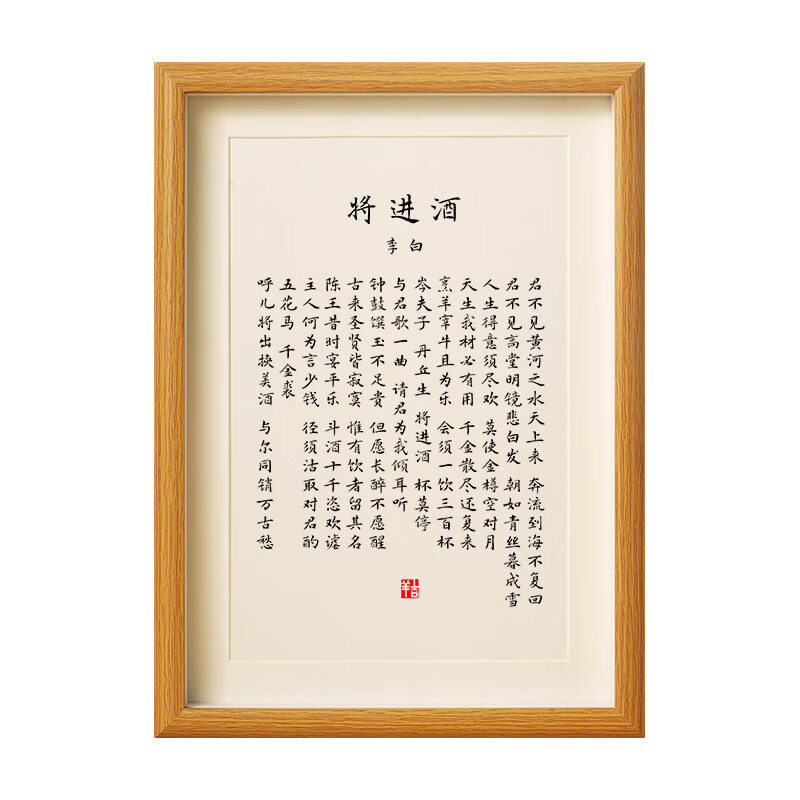 将进酒
李白
君不见黄河之水天上来 奔流到海不复回
君不见高堂明镜悲白发 朝如青丝暮成雪
人生得意须尽欢 莫使金樽空对月
天生我材必有用 千金散尽还复来
烹羊宰牛且为乐 会须一饮三百杯
岑夫子 丹丘生 将进酒 杯莫停
与君歌一曲 请君为我倾耳听
钟鼓馔玉不足贵 但愿长醉不愿醒
古来圣贤皆寂寞 惟有饮者留其名
陈王昔时宴平乐 斗酒十千恣欢谑
主人何为言少钱 径须沽取对君酌
五花马 千金裘
呼儿将出换美酒 与尔同销万古愁